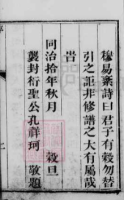 穆易橐詩曰君子有穀勿替
引之詎非修譜之大有屬哉
旹
同治拾年秋月　穀旦
襲封衍聖公孔祥珂　敬題